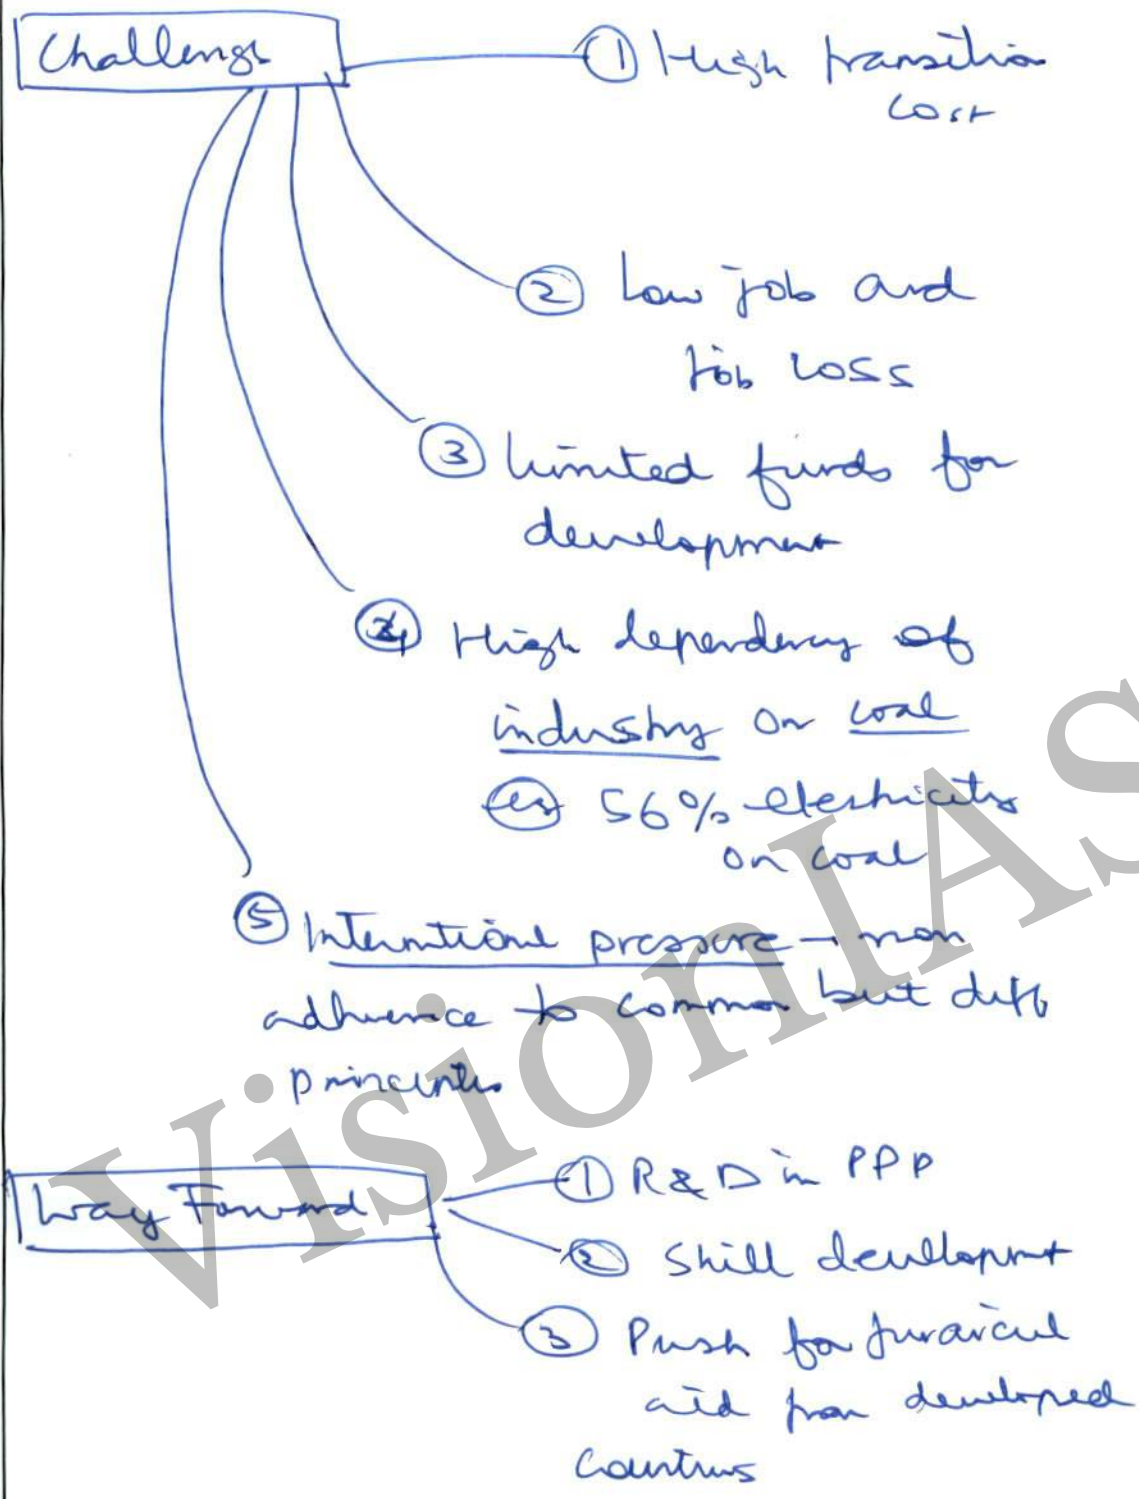 Challenge
① High transition
cost
② Low job and
job loss
③ Limited funds for
development
④ High dependency of
industry on coal
eg 56% electricity
on coal
⑤ International pressure – non
adherence to common but diff
principles
Way Forward
① R&D in PPP
② Skill development
③ Push for financial
aid from developed
countries
VisionIAS